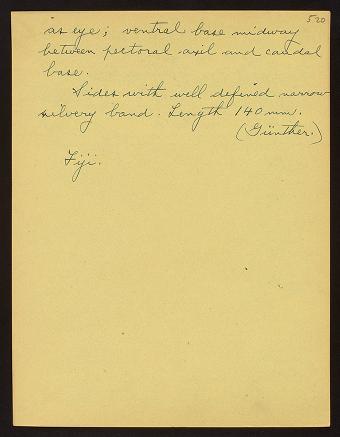 520
as eye; ventral base midway
between pectoral axil and caudal
base.
Sides with well defined narrow
silvery band. Length 140 mm.
(Günther.)
Fiji.